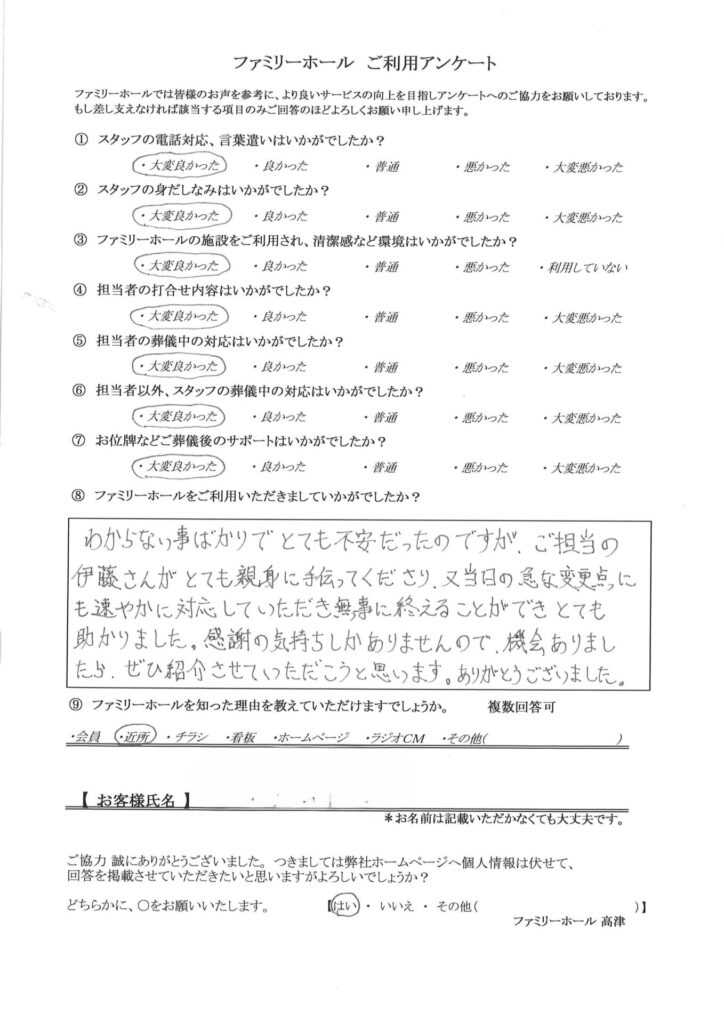 ファミリーホール ご利用アンケート
ファミリーホールでは皆様のお声を参考に、より良いサービスの向上を目指しアンケートへのご協力をお願いしております。
もし差し支えなければ該当する項目のみご回答のほどよろしくお願い申し上げます。
① スタッフの電話対応、言葉遣いはいかがでしたか？
・大変良かった ・良かった ・普通 ・悪かった ・大変悪かった
② スタッフの身だしなみはいかがでしたか？
・大変良かった ・良かった ・普通 ・悪かった ・大変悪かった
③ ファミリーホールの施設をご利用され、清潔感など環境はいかがでしたか？
・大変良かった ・良かった ・普通 ・悪かった ・利用していない
④ 担当者の打合せ内容はいかがでしたか？
・大変良かった ・良かった ・普通 ・悪かった ・大変悪かった
⑤ 担当者の葬儀中の対応はいかがでしたか？
・大変良かった ・良かった ・普通 ・悪かった ・大変悪かった
⑥ 担当者以外、スタッフの葬儀中の対応はいかがでしたか？
・大変良かった ・良かった ・普通 ・悪かった ・大変悪かった
⑦ お位牌などご葬儀後のサポートはいかがでしたか？
・大変良かった ・良かった ・普通 ・悪かった ・大変悪かった
⑧ ファミリーホールをご利用いただきましていかがでしたか？
わからない事ばかりで とても不安だったのですが、ご担当の
伊藤さんが とても親身に手伝ってくださり、又当日の急な変更点に
も速やかに対応していただき無事に終えることができ とても
助かりました。感謝の気持ちしかありませんので、機会ありまし
たら、ぜひ紹介させていただこうと思います。ありがとうございました。
⑨ ファミリーホールを知った理由を教えていただけますでしょうか。 複数回答可
・会員 ・近所 ・チラシ ・看板 ・ホームページ ・ラジオCM ・その他( )
【 お客様氏名 】
＊お名前は記載いただかなくても大丈夫です。
ご協力 誠にありがとうございました。つきましては弊社ホームページへ個人情報は伏せて、
回答を掲載させていただきたいと思いますがよろしいでしょうか？
どちらかに、○をお願いいたします。 【はい ・ いいえ ・ その他( )】
ファミリーホール 高津